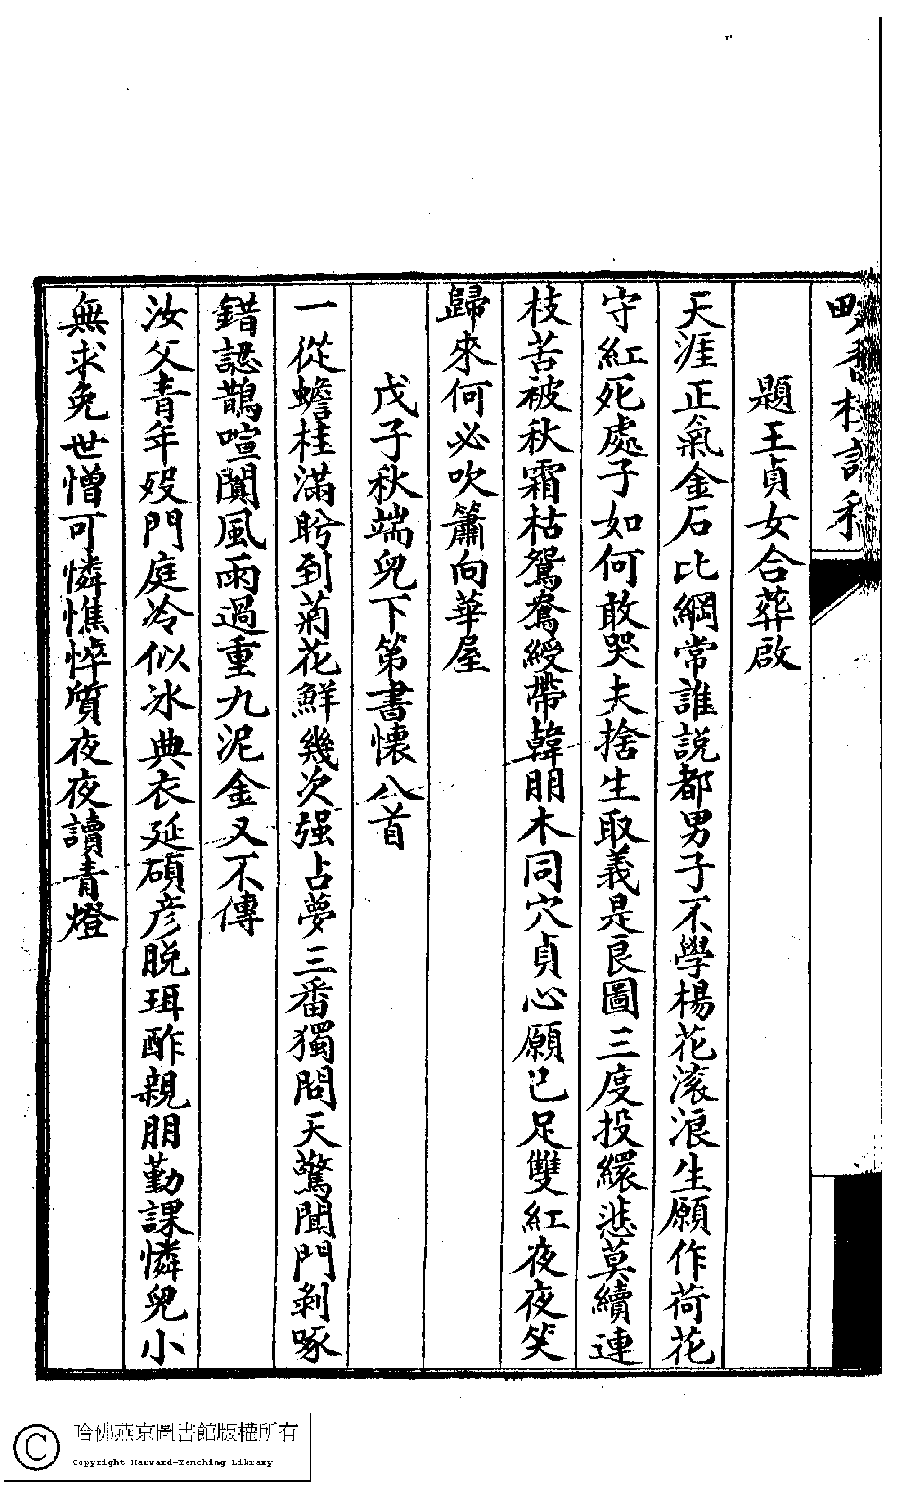 題王貞女合葬啟
天涯正氣金石比綱常誰説都男子不學楊花滚浪生願作荷花
守紅死處子如何敢哭夫捨生取義是良圖三度投繯悲莫續連
枝苦被秋霜枯鴛鴦綬帶韓朋木同穴貞心願已足雙紅夜夜笑
歸來何必吹簫向華屋
戊子秋端兒下第書懷八首
一從蟾桂滿盻到菊花鮮幾次强占夢三番獨問天驚聞門剥啄
錯認鵲喧闐風雨過重九泥金又不傳
汝父青年歿門庭冷似冰典衣延碩彦脱珥酢親朋勤課憐兒小
無求免世憎可憐憔悴質夜夜讀青燈
哈佛燕京圖書館版權所有
Copyright Harvard-Yenching Library